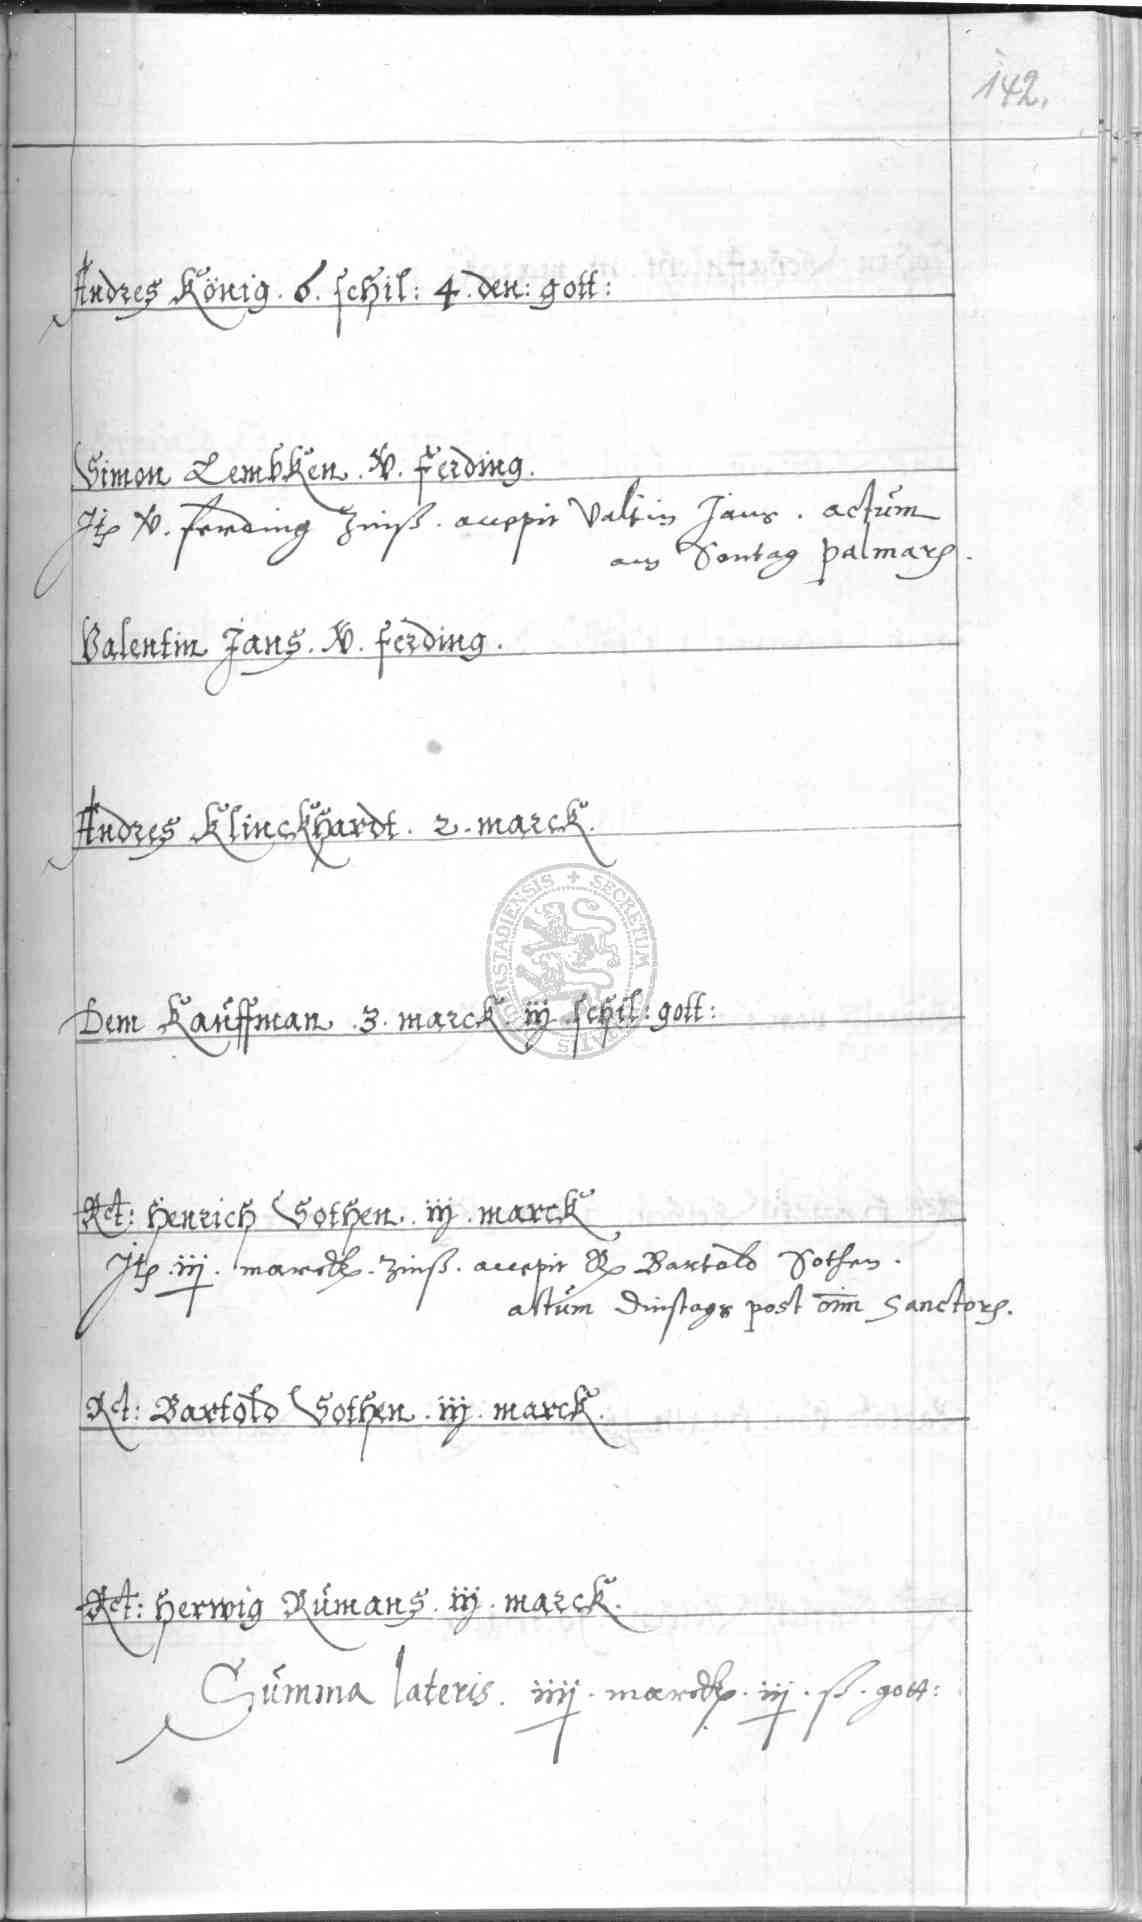 142.
Andres König. 6. schil: 4. den: gott:
Simon Lembken. V. ferding.
Jtp V. ferding Zinß. accepit Valtin Jans. actum
am Sontag palmarp.
Valentin Jans. V. ferding.
Andres Klinckhardt. 2. marck.
SECRETUM
Dem Kauffman. 3. marck. iij. schil: gott:
Rct: Henrich Sothen. iij. marck
Jtp. iij. marck. Zinß. accepit Bartold Sothen.
actum Dinstags post oim Sanctorp.
Rct: Bartold Sothen. iij. marck.
Rct: Herwig Rumans. iij. marck.
Summa lateris. iiij. marck. iij. ß. gott: